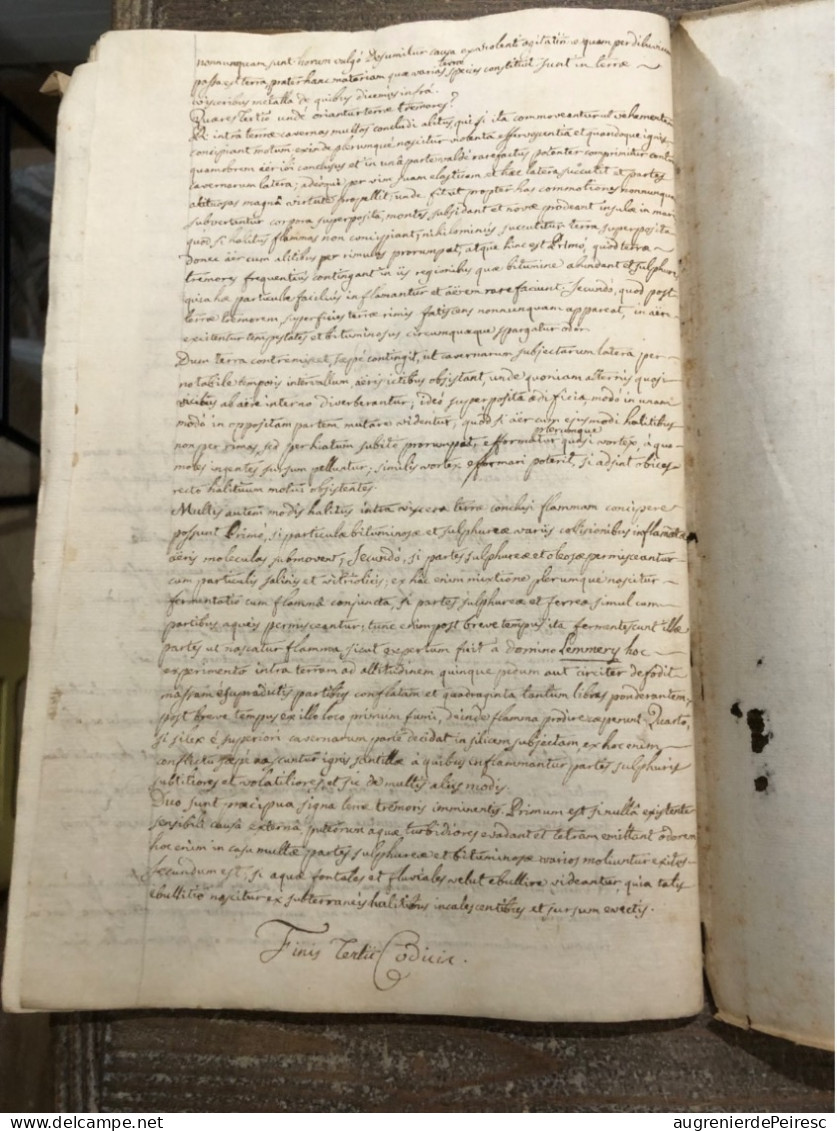 nonnunquam sunt horum vulgó desumitur causa ex violenti agitatione quam per diluvium
passa est terra, præter hanc materiam quæ varias terræ species constituit sunt in terræ
visceribus metalla de quibus dicemus infra.
Quæres Tertió undé oriantur terræ tremores?
intra terræ cavernas multos concludi alitus, qui si ita commoveantur ut vehementem
concipiant motum exinde plerumqué nascitur violenta effervescentia et quandoque ignis
quamobrem aër ibi conclusus et in unâ parte valdé rarefactus potenter comprimitur contra
cavernarum latera, adeoque per vim suam elasticam et hæc latera succutit et partes
alituosas magnâ virtute propellit, unde fit ut propter has commotiones nonnunquam
subvertantur corpora superposita, montes subsidant et novæ prodeant insulæ in mari
quód si halitus flammas non concipiant, nihilominus succutitur terra superposita
donec aër cum alitibus per rimulas prorumpat, atque hinc est Primó, quód terræ
tremores frequentius contingant in iis regionibus quæ bitumine abundant et sulphure
quia hæ particulæ facilius inflamantur et aërem rarefaciunt. Secundó, quod post
terræ tremorem superficies terræ rimis fatiscens nonnunquam appareat, in aëre
existentur tempestates et bituminosus circumquaque spargatur odor.
Dum terra contremiscet, sæpé contingit, ut cavernarum subjectarum latera per
notabile temporis intervallum, aëris ictibus obsistant, unde quoniam alternis quasi
vicibus ab aëre interno diverberantur; ideó superposita ædificia, modo in unam
modó in oppositam partem nutare videntur, quód si aër cum ejusmodi halitibus
non per rimas, sed per hiatum subitó prorumpat, efformatur plerumque quasi vortex, à quo
moles ingentes sursum pelluntur; similis vortex efformari poterit, si adsint obices
recto halituum motui obsistentes.
Multis autem modis halitus intra viscera terræ conclusi flammam concipere
possunt Primó, si particulæ bituminosæ et sulphureæ variis collisionibus inflammatæ
aëris moleculas submovent; Secundó, si partes sulphureæ et oleosæ permisceantur
cum particulis salinis et vitriolicis, ex hac enim mixtione plerumque nascitur
fermentatio cum flammâ conjuncta, si partes sulphureæ et ferreæ simul cum
partibus aqueis permisceantur; tunc enim post breve tempus ita fermentescunt illæ
partes ut nascatur flamma sicut expertum fuit a domino Lemmery hoc
experimento intra terram ad altitudinem quinque pedum aut circiter defodit
massam è supradictis partibus conflatam et quadraginta tantum libras ponderantem,
post breve tempus ex illo loco primúm fumi, deinde flamma prodire cæperunt Quartó,
si silex è superiori cavernarum parte decidat in silicem subjectam ex hoc enim
conflictu sæpé nascuntur ignis scintillæ à quibus inflammantur partes sulphuris
subtiliores et volatiliores, et sic de multis aliis modis.
Duo sunt præcipua signa terræ tremoris imminentis. Primum est si nullâ existente
sensibili causa externâ, puteorum aquæ turbidiores evadant et tetram emittant odorem
hoc enim in casu multæ partes sulphureæ et bituminosæ varios moliuntur exitus.
Secundum est, si aquæ fontales et fluviales velut ebullire videantur, quia talis
ebullitio nascitur ex subterraneis halitibus incalescentibus et sursum evectis.
Finis Tertii Codicis.
augrenierdePeiresc